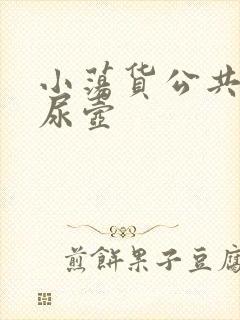 小蕩货公共
尿壶
煎餅果子豆腐